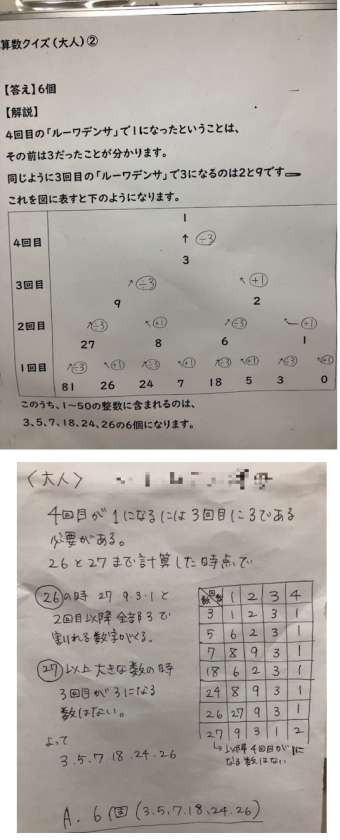 算数クイズ(大人)②
【答え】6個
【解説】
4回目の「ルーワデンサ」で1になったということは、
その前は3だったことが分かります。
同じように3回目の「ルーワデンサ」で3になるのは2と9です
これを図に表すと下のようになります。
1
4回目 ↑ ÷3
3
3回目 ÷3 +1
9 2
2回目 ÷3 +1 ÷3 +1
27 8 6 1
1回目 ÷3 +1 ÷3 +1 ÷3 +1 ÷3 +1
81 26 24 7 18 5 3 0
このうち、1~50の整数に含まれるのは、
3、5、7、18、24、26の6個になります。
〈大人〉
4回目が1になるには3回目に3である
必要がある。
26と27まで計算した時点で
26の時 27 9.3.1と
2回目以降全部3で
割れる数字がくる。
27以上大きな数の時
3回目が3になる
数はない。
よって
3.5.7.18.24.26
数 回数 1 2 3 4
3 1 2 3 1
5 6 2 3 1
7 8 9 3 1
18 6 2 3 1
24 8 9 3 1
26 27 9 3 1
27 9 3 1 2
↳以降4回目が1に
なる数はない
A. 6個(3.5.7.18.24.26)